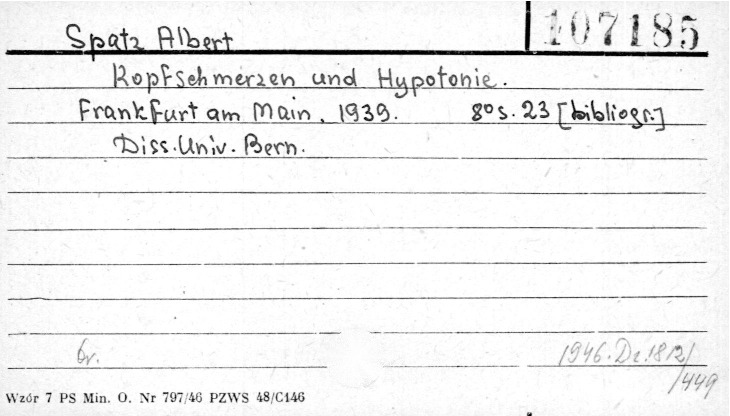 107185
Spatz Albert
Kopfschmerzen und Hypotonie.
Frankfurt am Main, 1939. 8º s. 23 [bibliogr.]
Diss. Univ. Bern.
br. 1946. Dz. 1812/
/449
Wzór 7 PS Min. O. Nr 797/46 PZWS 48/C146